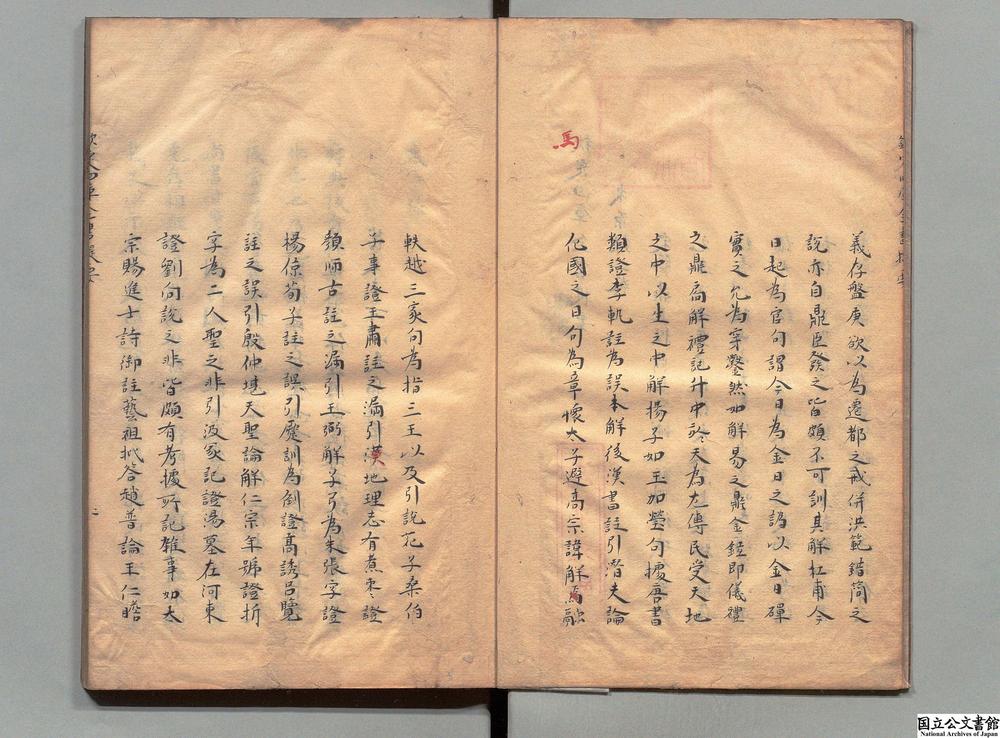 義存盤庚欲以為遷都之戒併洪範錯簡之
說亦自鼎臣發之皆頗不可訓其解杜甫今
日起為官句謂今日為金日之譌以金日磾
實之尤為穿鑿然如解易之鼎金鉉即儀禮
之鼎扃解禮記升中於天為左傳民受天地
之中以生之中解揚子如玉如瑩句據唐書
類證李軌註為誤本解後漢書註引潛夫論
化國之日句為章懷太子避高宗諱解馬融
馬
軼越三家句為指三王以及引說苑子桑伯
子事證王肅註之漏引漢地理志有煮棗證
顏師古註之漏引王弼解子弓為朱張字證
楊倞荀子註之誤引麗訓為倒證高誘呂覽
註之誤引殷仲堪天聖論解仁宗年號證折
字為二人聖之非引汲冢記證湯墓在河東
證劉向說之非皆頗有考據所記雜事如太
宗賜進士詩御註藝祖批答趙普論王仁瞻
二
国立公文書館
National Archives of Japan